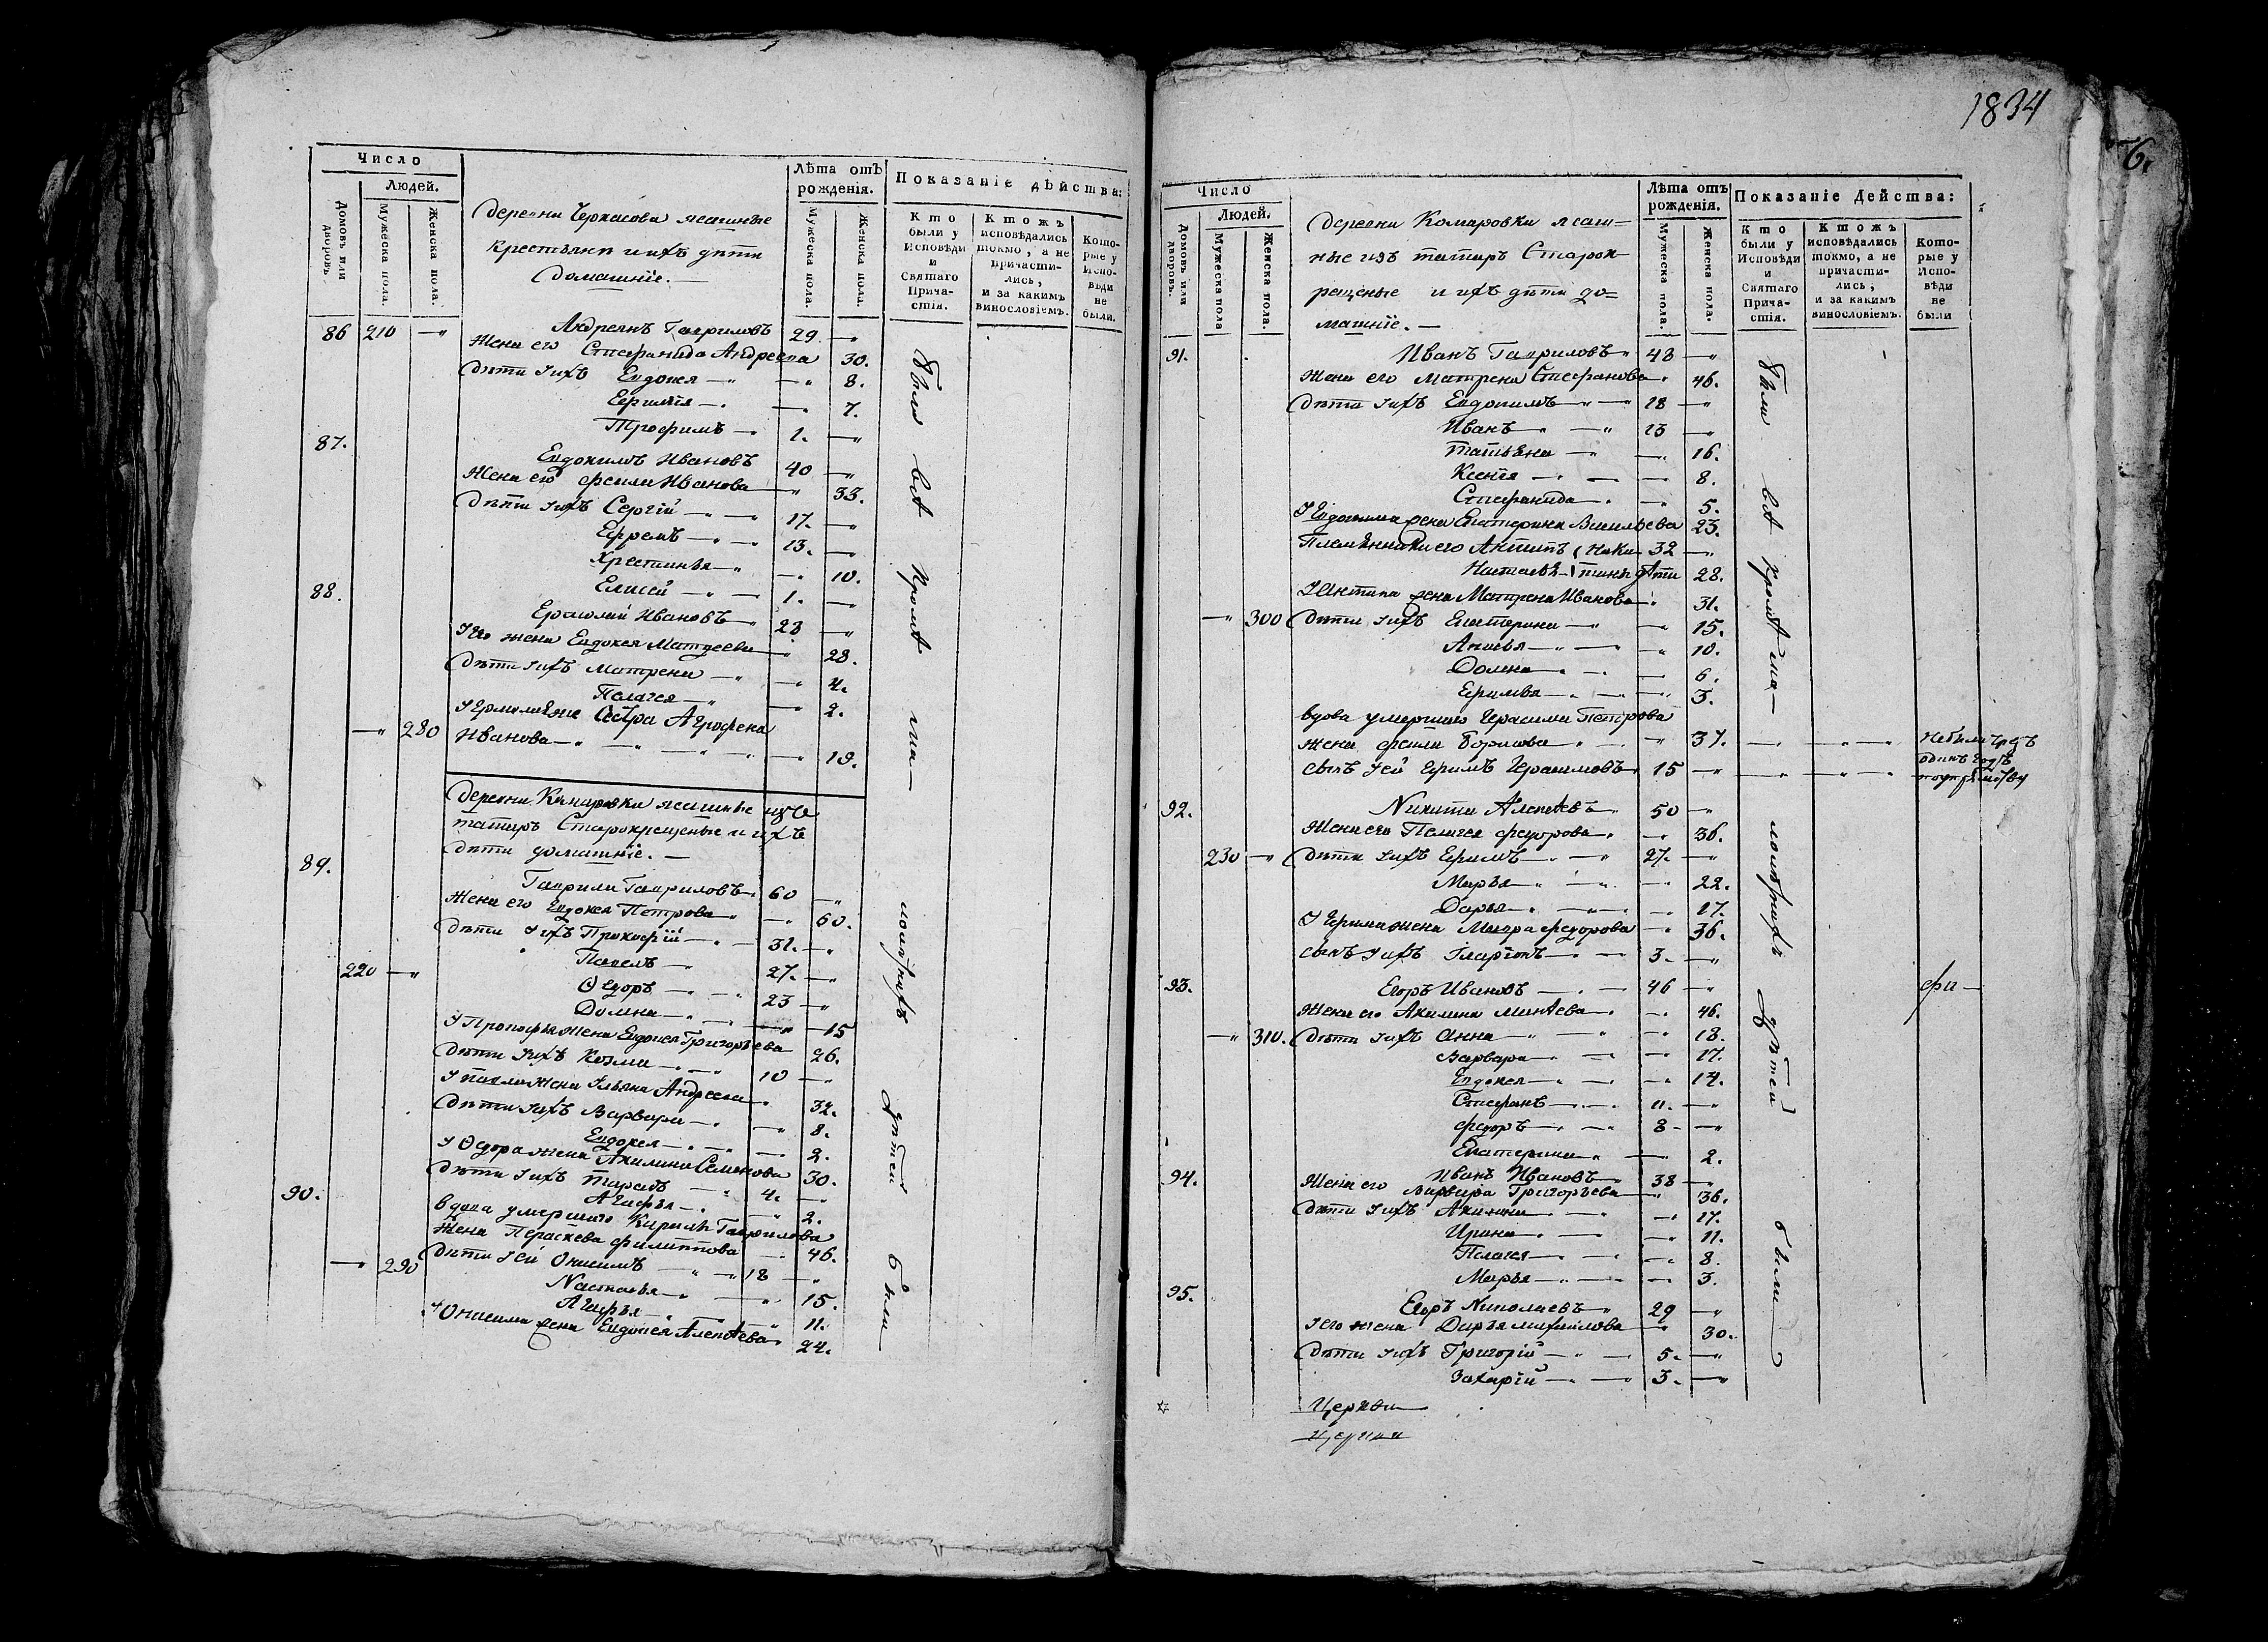 Число
Людей.
Домовъ или дворовъ.
Мужеска пола.
Женска пола.
Лѣта отъ рожденія.
Мужеска пола.
Женска пола.
Показаніе дѣйства:
Кто были у Исповѣди и Святаго Причастія.
Ктожъ исповѣдались токмо, а не причастились, и за какимъ винословіемъ.
Которые у Исповѣди не были.
деревни Черкасова ясашные
крестьяне и ихъ дѣти
домашніе.—
86 210 —" Андреянъ Гавриловъ 29 —"
Жена его Стефанида Андреева 30.
Дѣти ихъ Евдокея —" —" 8.
—" 7.
Трофимъ —" 1. —"
87. Евдокимъ Ивановъ 40 —"
Жена его фекла Иванова —" 33.
Дѣти ихъ Сергій —" — 17. —"
Ефремъ —" 13. —
Хрестинья —" —" 10.
Елисей —" — 1. —
88. Ермолай Ивановъ —" 28 —"
У его жена Евдокея Матвеева —" 28.
Дѣти ихъ Матрена —" —" 4.
Пелагея —" —" 2.
У Ермолая Сестра Агрофена
—" 280 Иванова —" — —" —" 19.
деревни Комаровки ясашные изъ
татаръ Старокрещеные и ихъ
дѣти домашніе.—
89. Гаврила Гавриловъ 60 —"
Жена его Евдокея Петрова —" 60.
Дѣти ихъ Прокофій —" — 31. —"
Павелъ —" 27. —"
220 —" Ѳедоръ —" —" 23 —"
Домна —" —" 15
У Прокофья жена Евдокея Григорьева 26.
Дѣти ихъ Козма —" 10 —"
У Павла жена Ульяна Андреева 32.
Дѣти ихъ Варвара —" —" 8.
Евдокея —" —" 2.
У Ѳедора жена Акилина Семенова 30.
Дѣти ихъ Тарасъ —" 4. —"
Агафья —" —" 2.
90. вдова умершаго Кирила Гаврилова
Жена Параскева филиппова 46.
—" 290 Дѣти ея Онисимъ —" 18 —"
Настасья —" —" 15.
Агафья —" —" 11.
У Онисима жена Евдокея Алексѣева 24.
были всѣ кромѣ малолѣтнихъ дѣтей были
1834
6.
Число
Людей.
Домовъ или дворовъ.
Мужеска пола
Женска пола.
Лѣта отъ рожденія.
Мужеска пола.
Женска пола.
Показаніе Действа:
Кто были у Исповѣди и Святаго Причастія.
Ктожъ исповѣдались токмо, а не причастились, и за какимъ винословіемъ.
Которые у Исповѣди не были
деревни Комаровки ясаш=
ные изъ татаръ Старок=
рещеные и ихъ дѣти до=
машніе.—
91. Иванъ Гавриловъ 48 —"
Жена его Матрена Стефанова 46.
Дѣти ихъ Евдокимъ —" — 18 —"
Иванъ —" —" 13 —"
Татьяна —" —" 16.
Ксенія —" — 8.
Стефанида —" —" 5.
У Евдокима жена Екатерина Васильева 23.
Племянники его Антипъ (Ники- 32 —"
Настасья —" (тины дѣти 28.
У Антипа жена Матрена Иванова 31.
—" 300 Дѣти ихъ Екатерина —" —" 15.
Анисья —" —" 10.
Домна —" — 6.
—" 3.
вдова умершаго Герасима Петрова
Жена фекла Борисова —" —" 37. — —" — Небыли чрезъ
сынъ ея Ефимъ Герасимовъ 15 —" —" —" — одинъ годъ
92. Никита Алексѣевъ 50 —"
Жена его Пелагея федорова —" 36.
230 —" Дѣти ихъ Ефимъ —" —" 27. —"
Марья —" —" —" 22.
Дарья —" —" —" 17.
У Ефима жена Мавра федорова —" 36.
сынъ ихъ Иларіонъ —" — 3. —"
93. Егоръ Ивановъ —" — 46 —"
Жена его Акилина —" 46.
—" 310. Дѣти ихъ Анна —" —" —" 18.
Варвара —" —" 17.
Евдокея —" —" 14.
Стефанъ —" 11. —"
федоръ —" —" 8 —"
Екатерина —" — 2.
94. Иванъ Ивановъ —" 38 —"
Жена его Варвара Григорьева —" 36.
Дѣти ихъ Акилина —" —" 17.
Ирина —" — —" 11.
Пелагея —" —" 8.
Марья —" —" 3.
95. Егоръ Николаевъ —" 29 —"
У его жена Дарья Михайлова —" 30.
Дѣти ихъ Григорій —" — 5. —"
Захарій —" —" 3. —"
были всѣ кромѣ малолѣтнихъ дѣтей были
Церкви